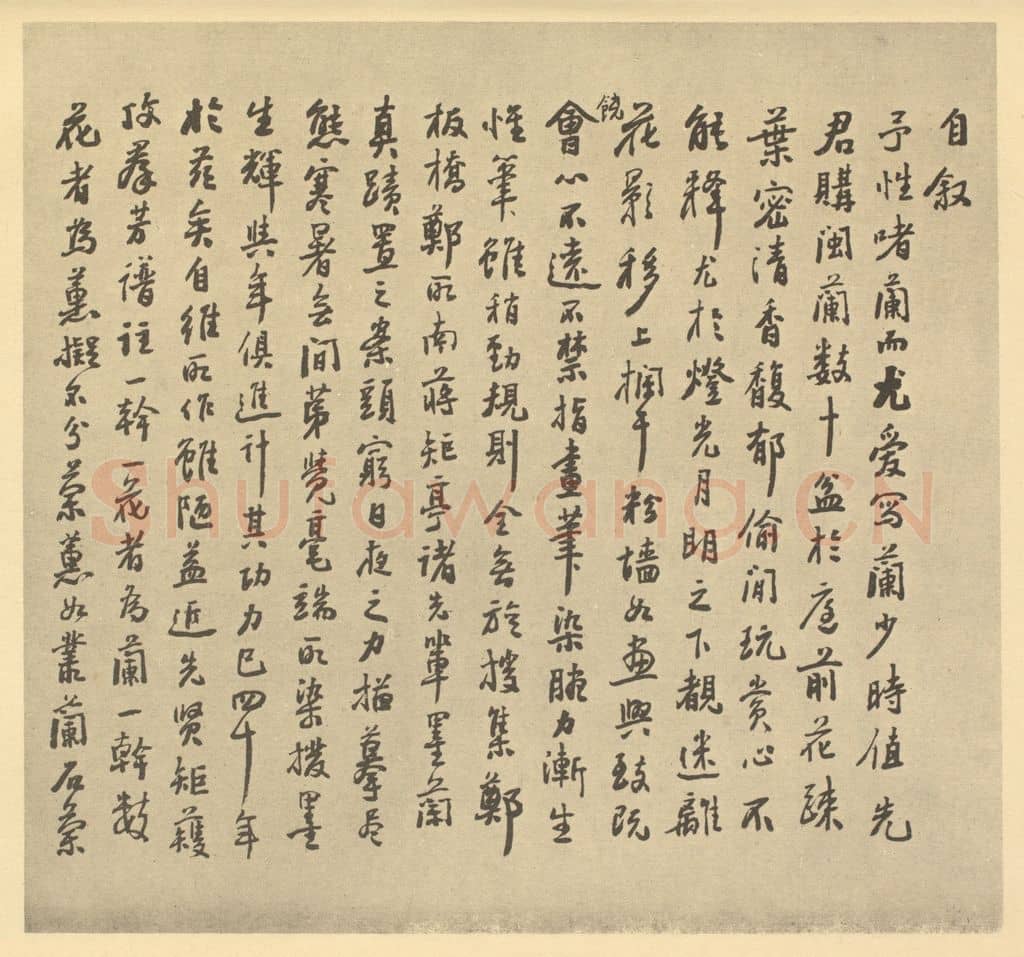 自叙
予性嗜蘭而尤爱写蘭少時值先
君購閩蘭数十盆於庭前花疎
葉密清香馥郁偷閒玩賞心不
能釋尤於燈光月朗之下覩迷離
花影移上摑干粉墙如畫興致既
饒
會心不遠不禁指畫笔染腕力漸生
惟筆雖稍勁規則全無於搜集鄭
板橋鄭所南蔣矩亭诸先輩墨蘭
真蹟置之案頭窮日夜之力描摹
態寒暑無间第覺毫端所染撥墨
生輝與年俱進计其功力已四十年
於兹矣自維所作雖陋益近先贤矩蒦
攷羣芳谱註一幹一花者為蘭一幹数
花者為蕙擬不分蘭蕙如叢蘭石蘭
Shufawang.CN